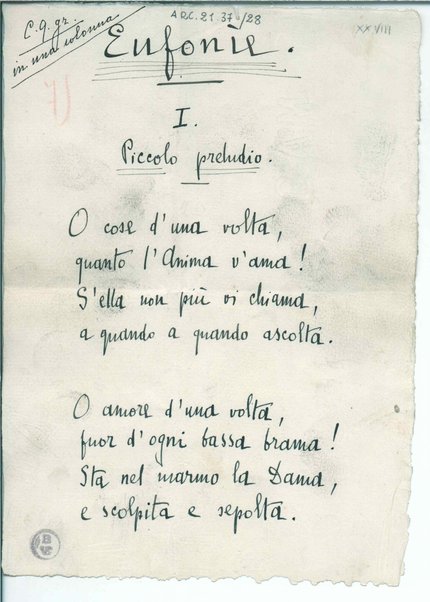 C. 9. gr.
in una colonna
ARC. 21 37 /28
XXVIII
Eufonie.
7)
I.
Piccolo preludio.
O cose d'una volta,
quanto l'Anima v'ama!
S'ella non più vi chiama,
a quando a quando ascolta.
O amore d'una volta,
fuor d'ogni bassa brama!
Sta nel marmo la Dama,
e scolpita e sepolta.